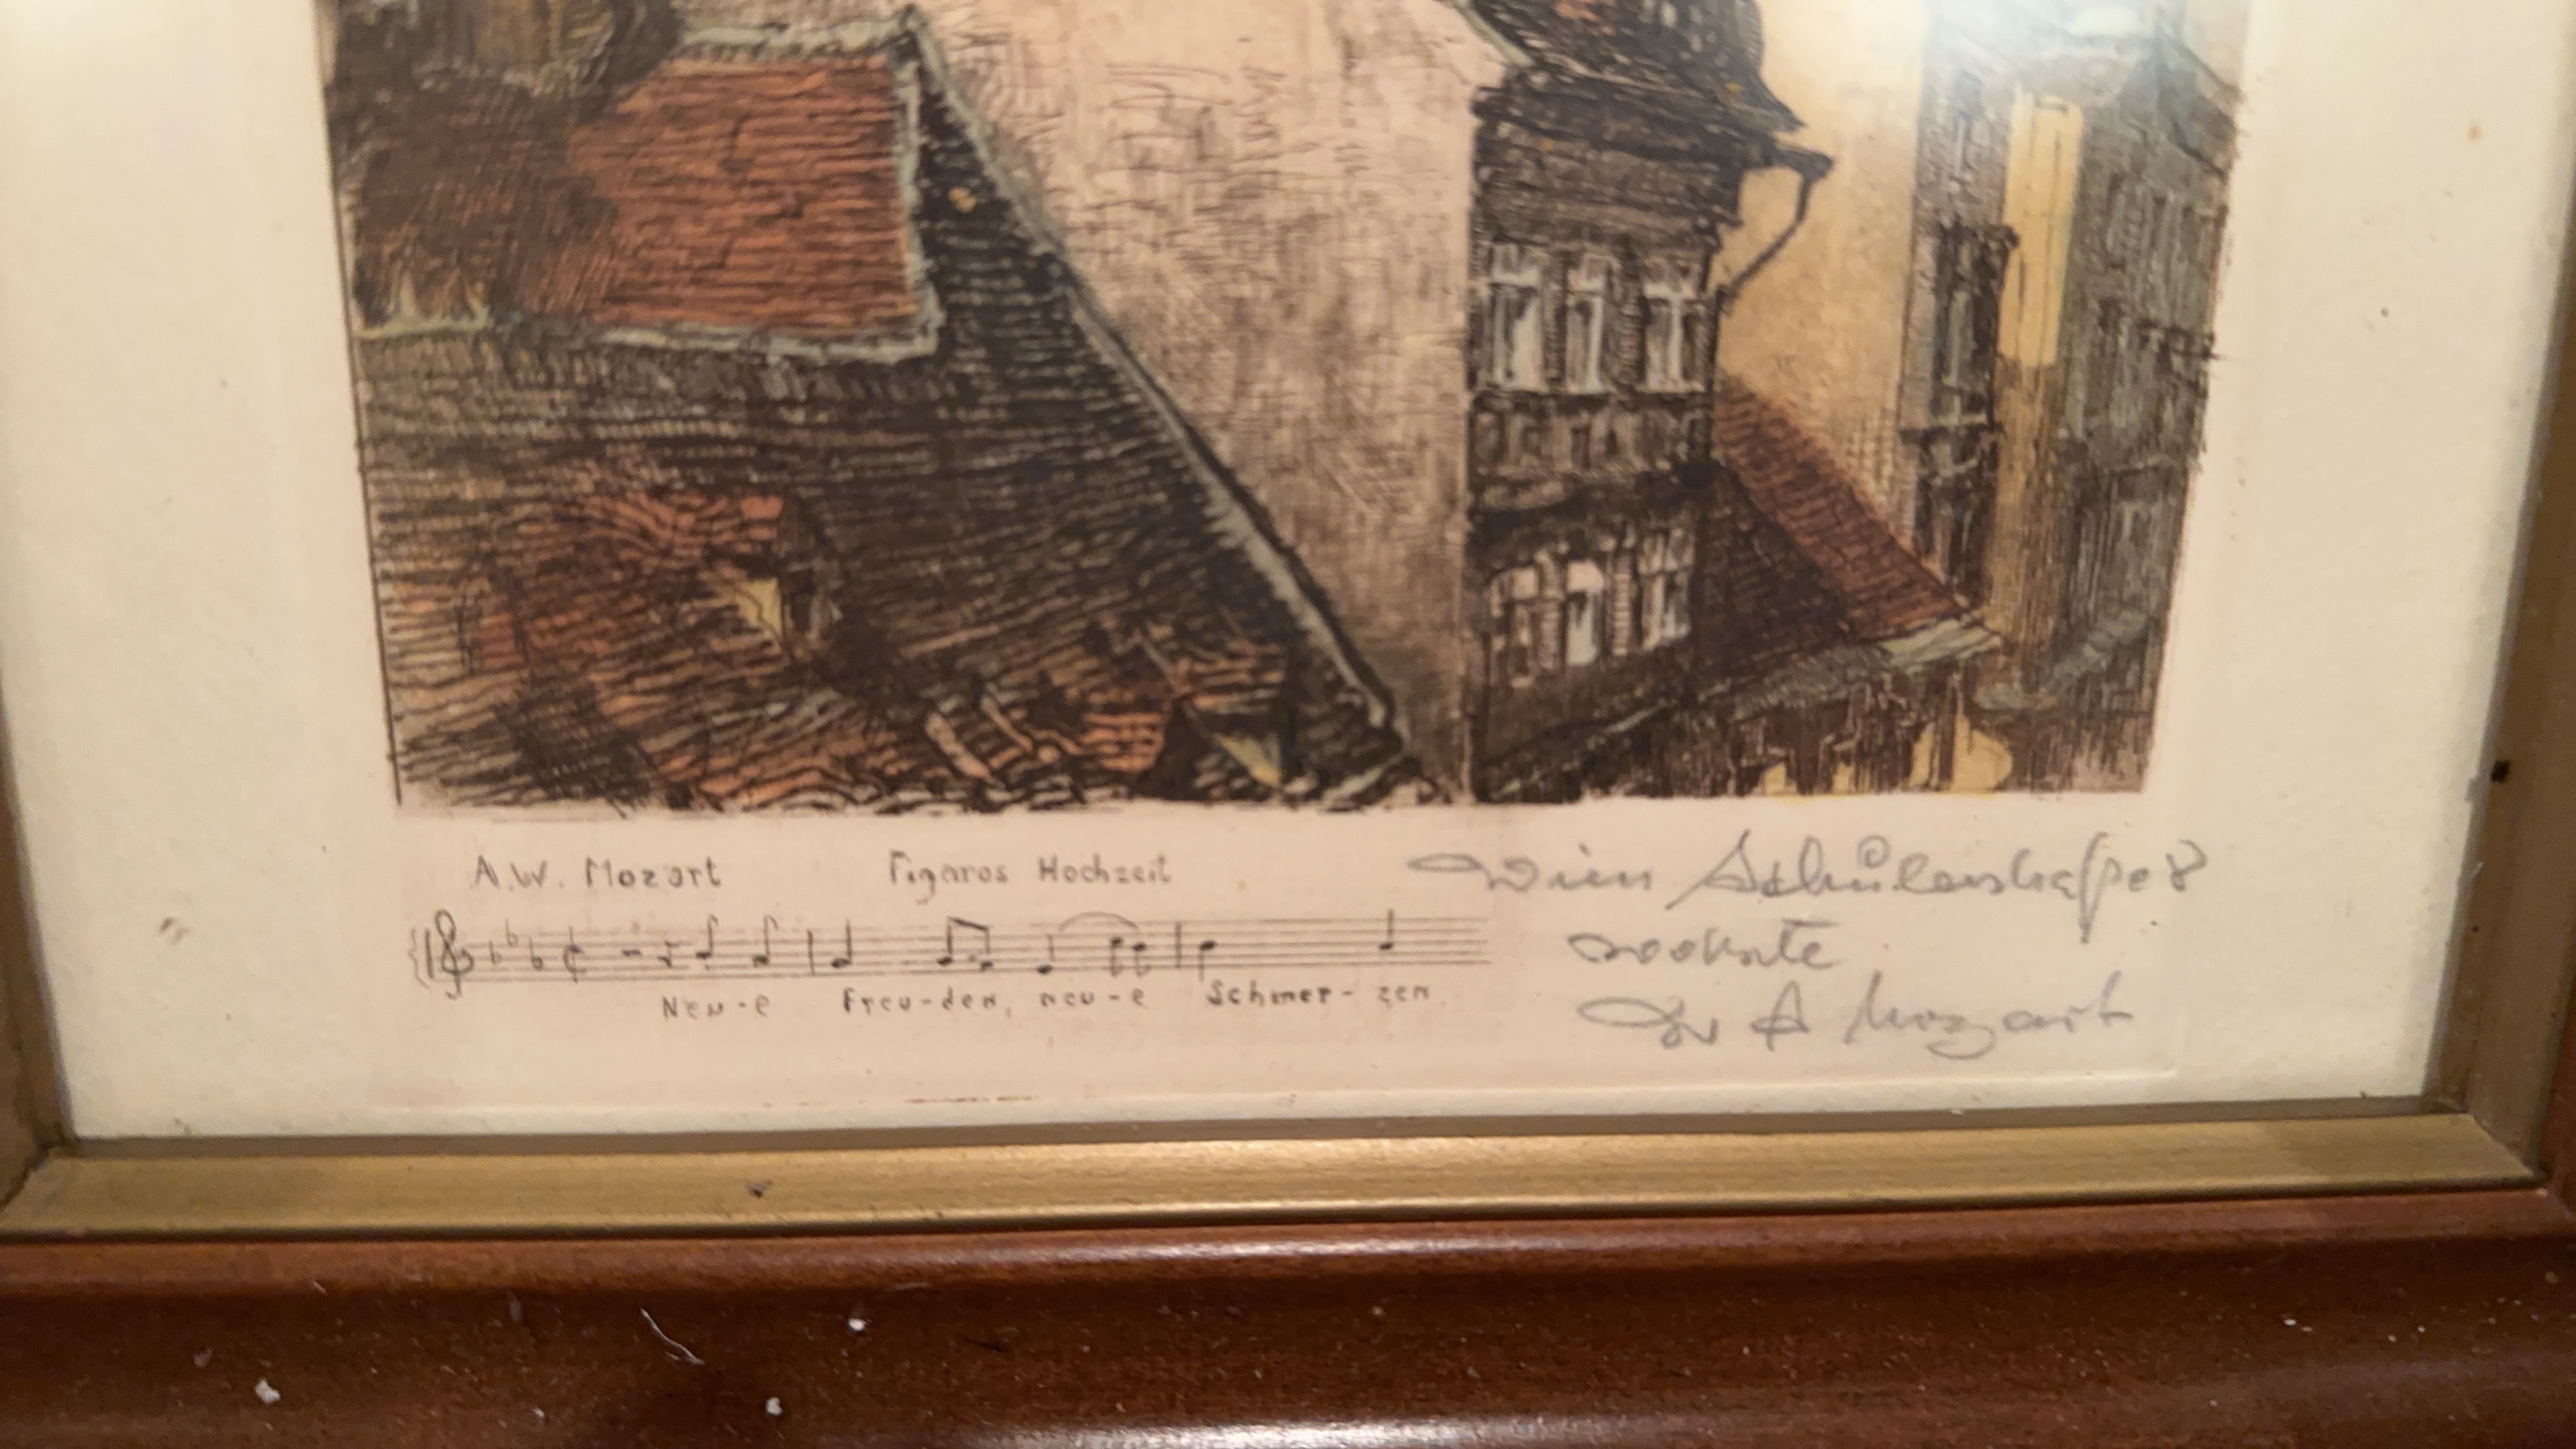 A.W. Mozart Figaros Hochzeit
Neu-e Freu-den, neu-e Schmer-zen.
Wien Schülerstraße 8
wohnte
W A Mozart